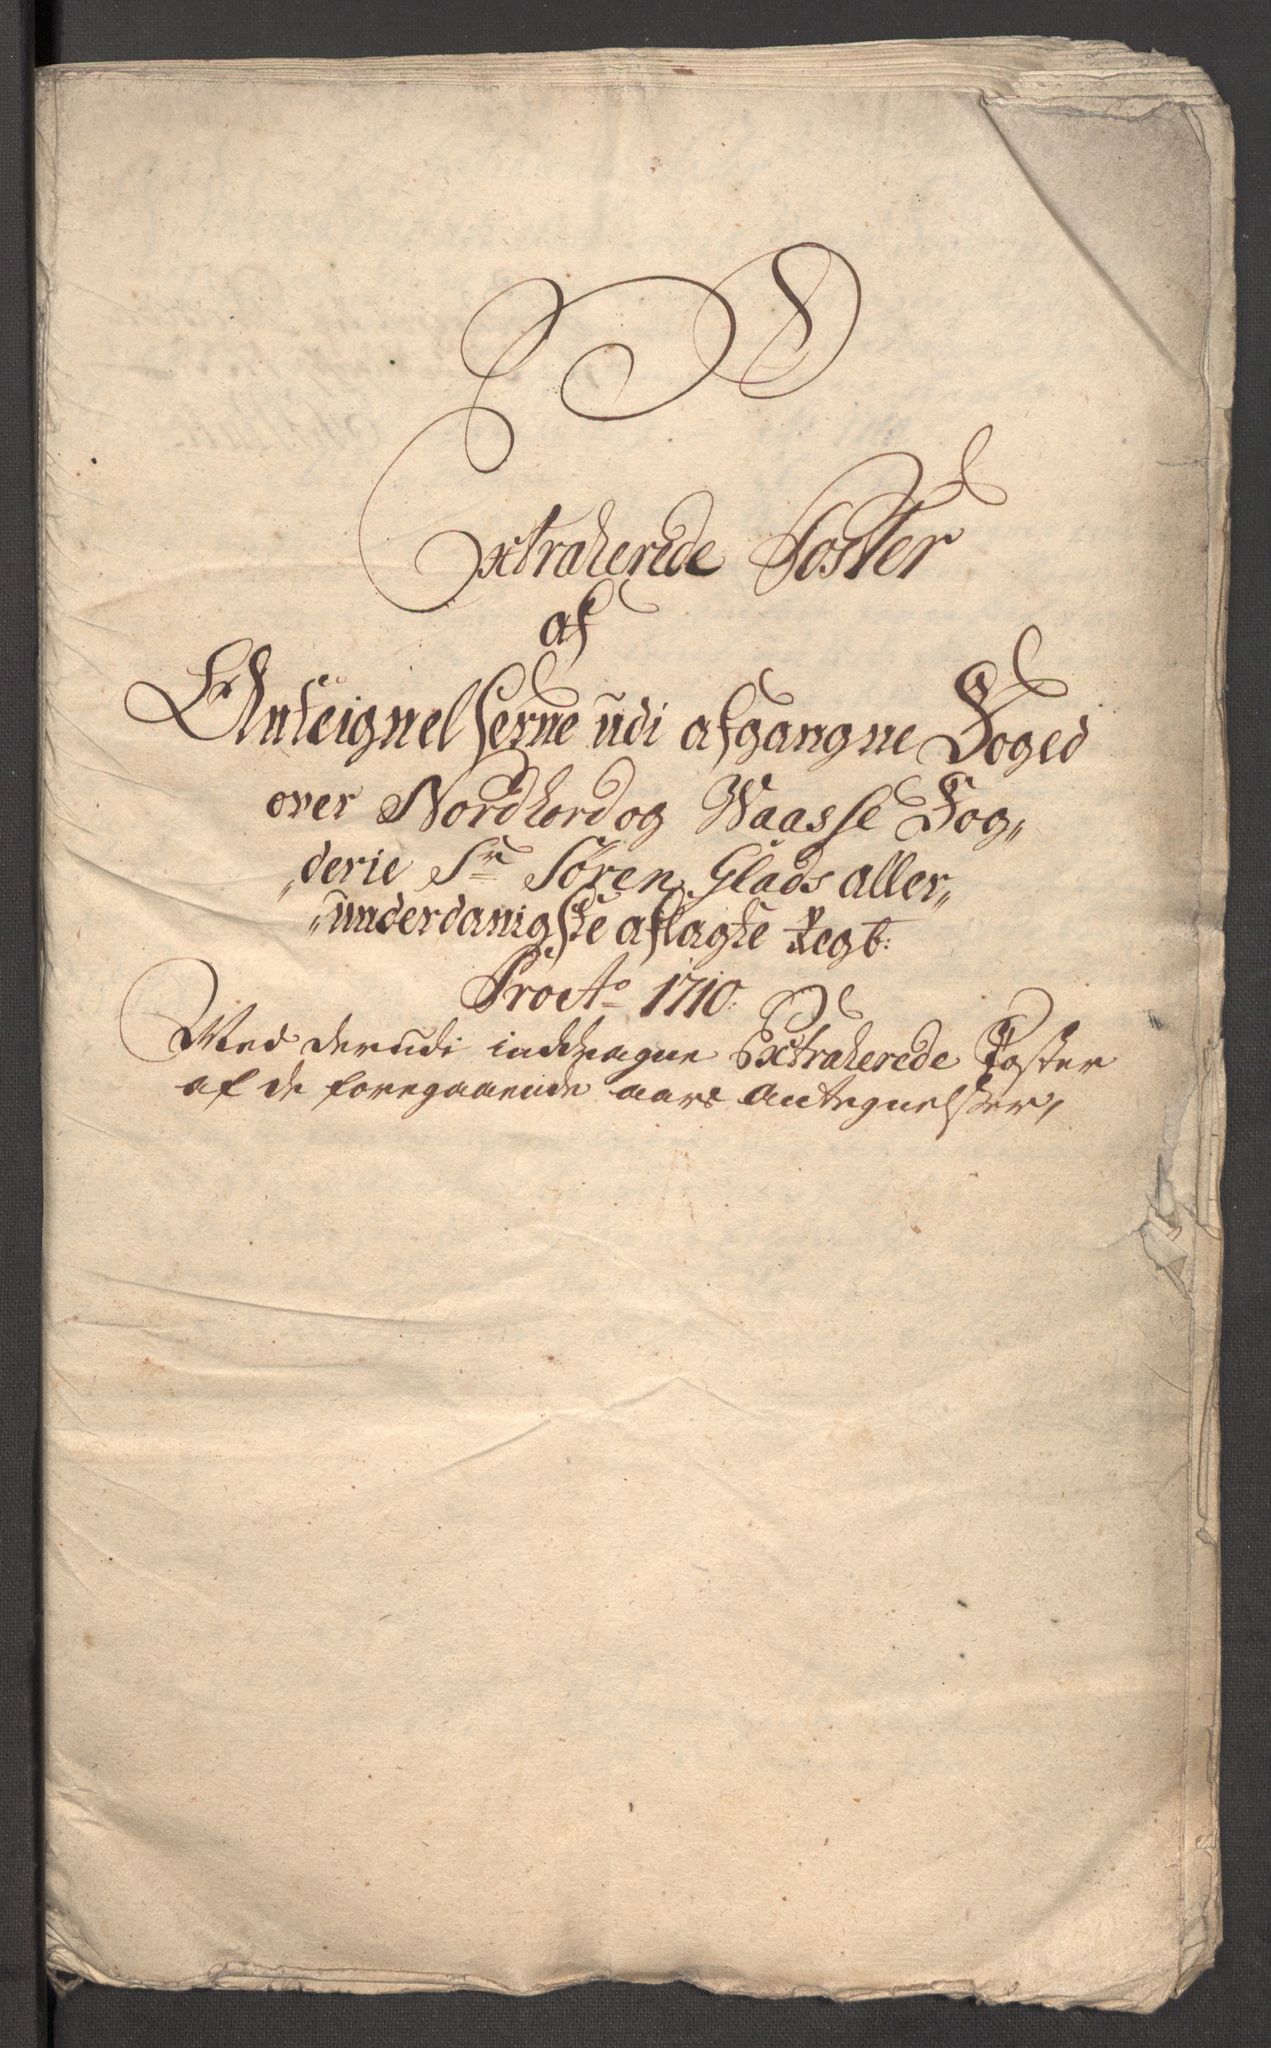 Extraherede Poster
af
Anteignelserne udi afgangne Foged
over Nordhord og Waasse Fog„
„derie Sr Søren Glads aller„
„underdanigste aflagte Regb:
Pro Ao 1710:
Med derudi inddragne Extraherede Poster
af de foregaaende aars Antegnelsser,